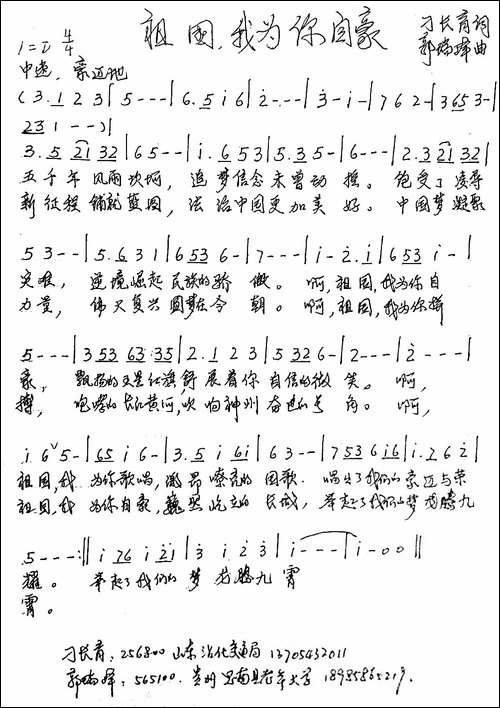 祖国,我为你自豪
1=D 4/4
刁长育词
郭瑞琸曲
中速,豪迈地
(3.1 2 3|5---|6.5 i 6|2---|3-i-|7 6 2-|3 65 3-|
23 1--)|
3.5 21 32|6 5--|i.6 5 3|5.3 5-|6---|2.3 21 32|
五千年风雨坎坷,追梦信念未曾动摇。饱受了凌辱
新征程铺就蓝图,法治中国更加美好。中国梦凝聚
5 3--|5.6 3 1|6 53 6-|7---|i-2.i|6 53 i-|
灾难,逆境崛起民族的骄傲。啊,祖国,我为你自
力量,伟大复兴圆梦在今朝。啊,祖国,我为你拼
5---|3 53 63.35|2.1 2 3|5 32 6-|2---|2---|
豪,飘扬的五星红旗,舒展着你自信的微笑。啊,
搏,咆哮的长江黄河,吹响神州奋进的号角。啊,
i 6 5-|65 i 6-|3.5 i 6i|6 3--|7 53 6 i6|i.2 6 2|
祖国,我为你歌唱,激昂嘹亮的国歌.唱出了我们的豪迈与荣
祖国,我为你自豪,巍然屹立的长城,举起了我们的梦龙腾九
5---:‖i 76 i 2i|3 i 2 3|i---|i-00‖
耀。举起了我们的梦龙腾九霄
霄。
刁长育:256800 山东沾化交通局 13705432011
郭瑞琸:565100.贵州思南县老年大学